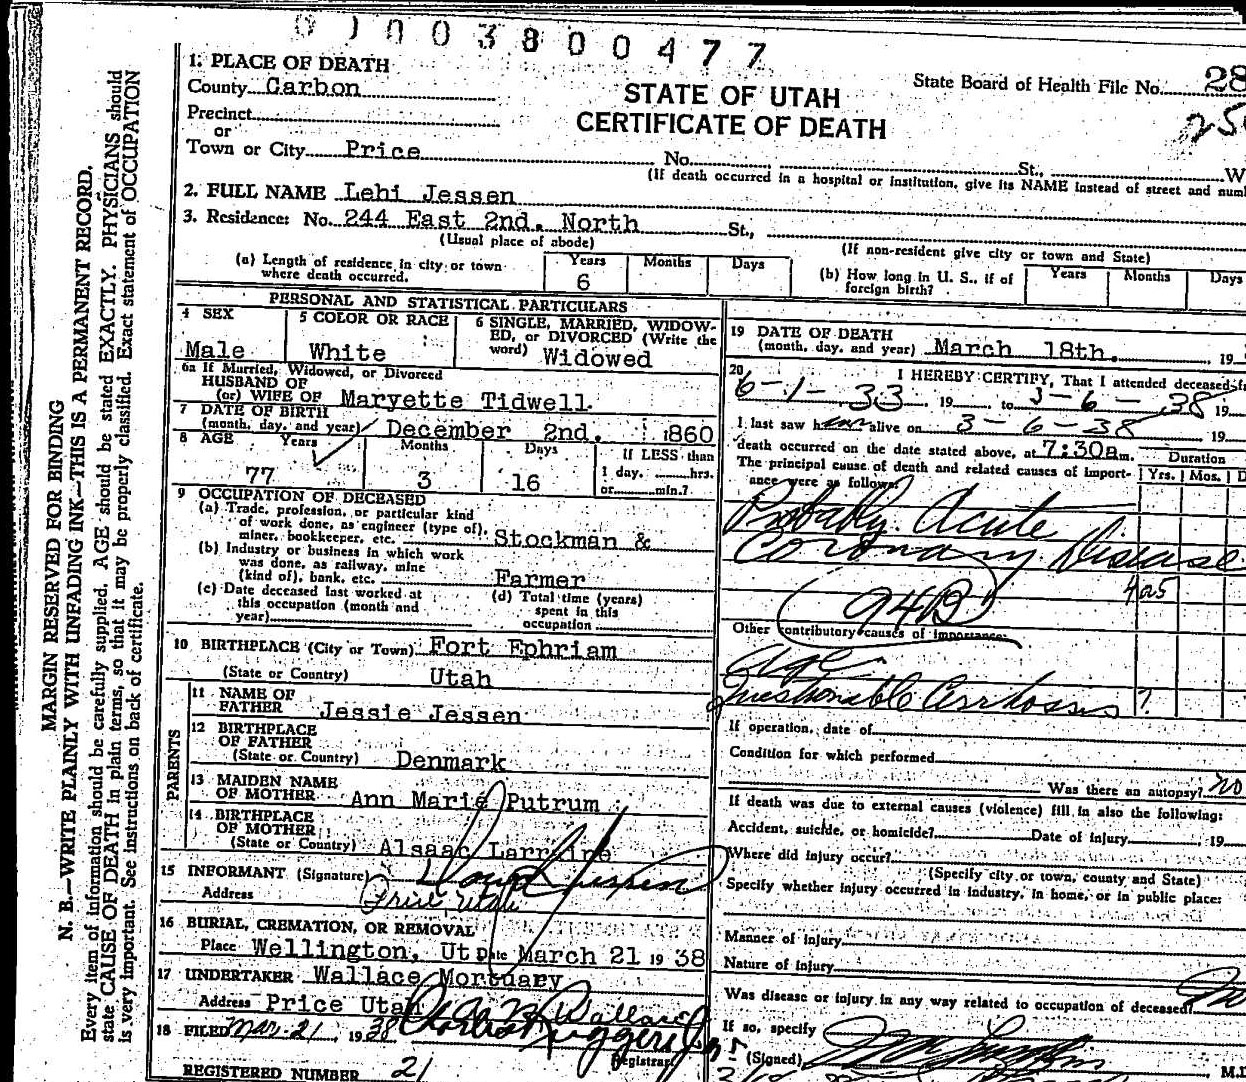 0 1 0 0 3 8 0 0 4 7 7
1. PLACE OF DEATH
County Carbon
STATE OF UTAH
State Board of Health File No. 28
Precinct
CERTIFICATE OF DEATH
or
Town or City Price No. St., W
(If death occurred in a hospital or institution, give its NAME instead of street and num
2. FULL NAME Lehi Jessen
3. Residence: No. 244 East 2nd. North St.,
(Usual place of abode)
(If non-resident give city or town and State)
(a) Length of residence in city or town
where death occurred.
Years Months Days
6
(b) How long in U. S., if of
foreign birth?
Years Months Days
PERSONAL AND STATISTICAL PARTICULARS
4 SEX
Male
5 COLOR OR RACE
White
6 SINGLE, MARRIED, WIDOW-
ED, or DIVORCED (Write the
word) Widowed
6a If Married, Widowed, or Divorced
HUSBAND OF
(or) WIFE OF Maryette Tidwell
7 DATE OF BIRTH
(month, day, and year) December 2nd. 1860
8 AGE Years Months Days
77 3 16
If LESS than
1 day, hrs.
or min.?
9 OCCUPATION OF DECEASED
(a) Trade, profession, or particular kind
of work done, as engineer (type of),
miner, bookkeeper, etc. Stockman &
(b) Industry or business in which work
was done, as railway, mine
(kind of), bank, etc. Farmer
(c) Date deceased last worked at
this occupation (month and
year)
(d) Total time (years)
spent in this
occupation
10 BIRTHPLACE (City or Town) Fort Ephriam
(State or Country) Utah
PARENTS
11 NAME OF
FATHER Jessie Jessen
12 BIRTHPLACE
OF FATHER
(State or Country) Denmark
13 MAIDEN NAME
OF MOTHER Ann Marie Putrum
14 BIRTHPLACE
OF MOTHER
(State or Country) Alsaac Larraine
15 INFORMANT (Signature) Lloyd Jessen
Address Price, Utah
16 BURIAL, CREMATION, OR REMOVAL
Place Wellington, Ut Date March 21 19 38
17 UNDERTAKER Wallace Mortuary
Address Price Utah
18 FILED Mar. 21, 19 38
Registrar
REGISTERED NUMBER 21
19 DATE OF DEATH
(month, day, and year) March 18th. 19
20 I HEREBY CERTIFY, That I attended deceased from
6-1-33 19 to 3-6-38 19
I last saw him alive on 3-6-38 19
death occurred on the date stated above, at 7:30am.
Duration
The principal cause of death and related causes of import-
ance were as follows:
Yrs. Mos. D
Probably Acute
Coronary Disease
94B
Other contributory causes of importance:
Age
Questionable ?
If operation, date of
Condition for which performed
Was there an autopsy? no
If death was due to external causes (violence) fill in also the following:
Accident, suicide, or homicide? Date of injury, 19
Where did injury occur?
(Specify city or town, county and State)
Specify whether injury occurred in industry, in home, or in public place:
Manner of injury
Nature of injury
Was disease or injury in any way related to occupation of deceased? No
If so, specify
(Signed) M.D
MARGIN RESERVED FOR BINDING
N. B.—WRITE PLAINLY WITH UNFADING INK—THIS IS A PERMANENT RECORD.
Every item of information should be carefully supplied. AGE should be stated EXACTLY. PHYSICIANS should
state CAUSE OF DEATH in plain terms, so that it may be properly classified. Exact statement of OCCUPATION
is very important. See instructions on back of certificate.